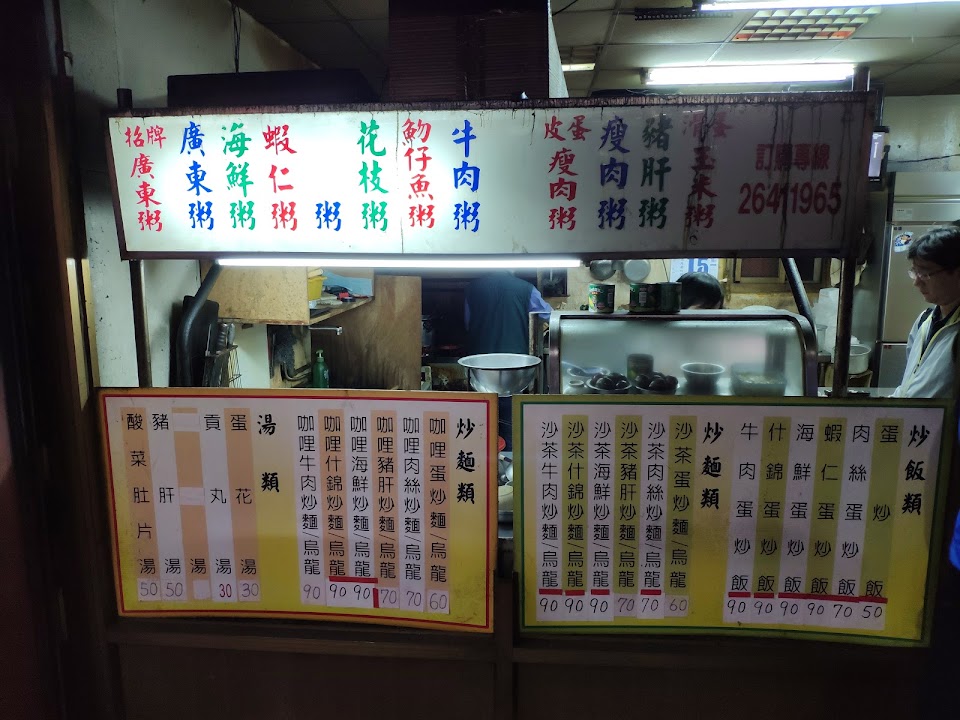 招牌廣東粥
廣東粥
海鮮粥
蝦仁粥
粥
花枝粥
魩仔魚粥
牛肉粥
皮蛋瘦肉粥
瘦肉粥
豬肝粥
滑蛋玉米粥
訂購專線
26411965
15
炒飯類
蛋炒飯 50
肉絲蛋炒飯 70
蝦仁蛋炒飯 90
海鮮蛋炒飯 90
什錦蛋炒飯 90
牛肉蛋炒飯 90
炒麵類
沙茶蛋炒麵/烏龍 60
沙茶肉絲炒麵/烏龍 70
沙茶豬肝炒麵/烏龍 70
沙茶海鮮炒麵/烏龍 90
沙茶什錦炒麵/烏龍 90
沙茶牛肉炒麵/烏龍 90
炒麵類
咖哩蛋炒麵/烏龍 60
咖哩肉絲炒麵/烏龍 70
咖哩豬肝炒麵/烏龍 70
咖哩海鮮炒麵/烏龍 90
咖哩什錦炒麵/烏龍 90
咖哩牛肉炒麵/烏龍 90
湯類
蛋花湯 30
貢丸湯 30
湯
豬肝湯 50
酸菜肚片湯 50